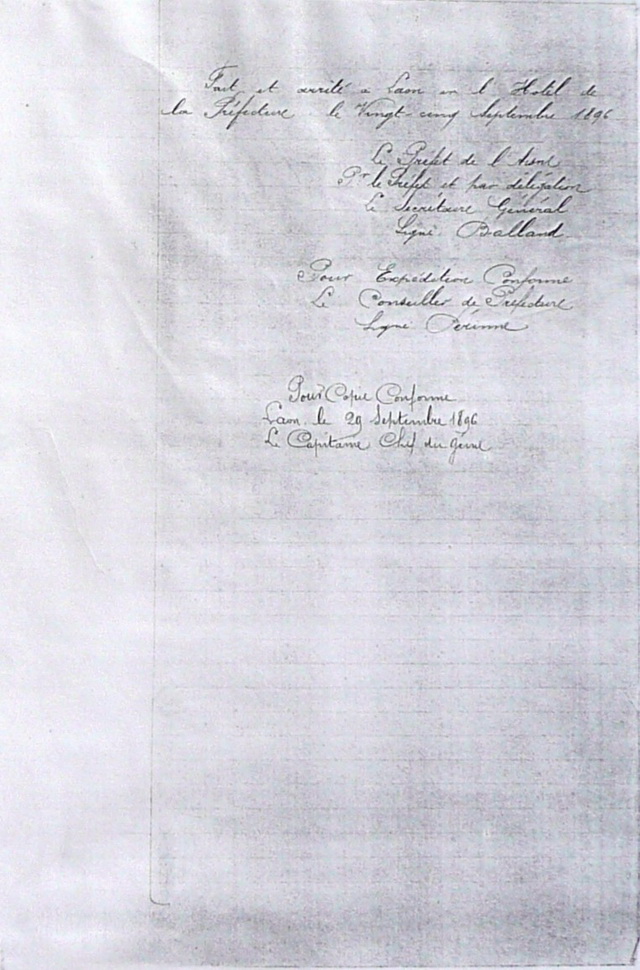 Fait et arrêté à Laon en l'Hotel de
la Préfecture le Vingt-cinq Septembre 1896
Le Préfet de l'Aisne
Pr le Préfet et par délégation
Le Secrétaire Général
Signé Balland
Pour Expédition Conforme
Le Conseiller de Préfecture
Signé Périnne
Pour Copie Conforme
Laon le 29 Septembre 1896
Le Capitaine Chef du Génie